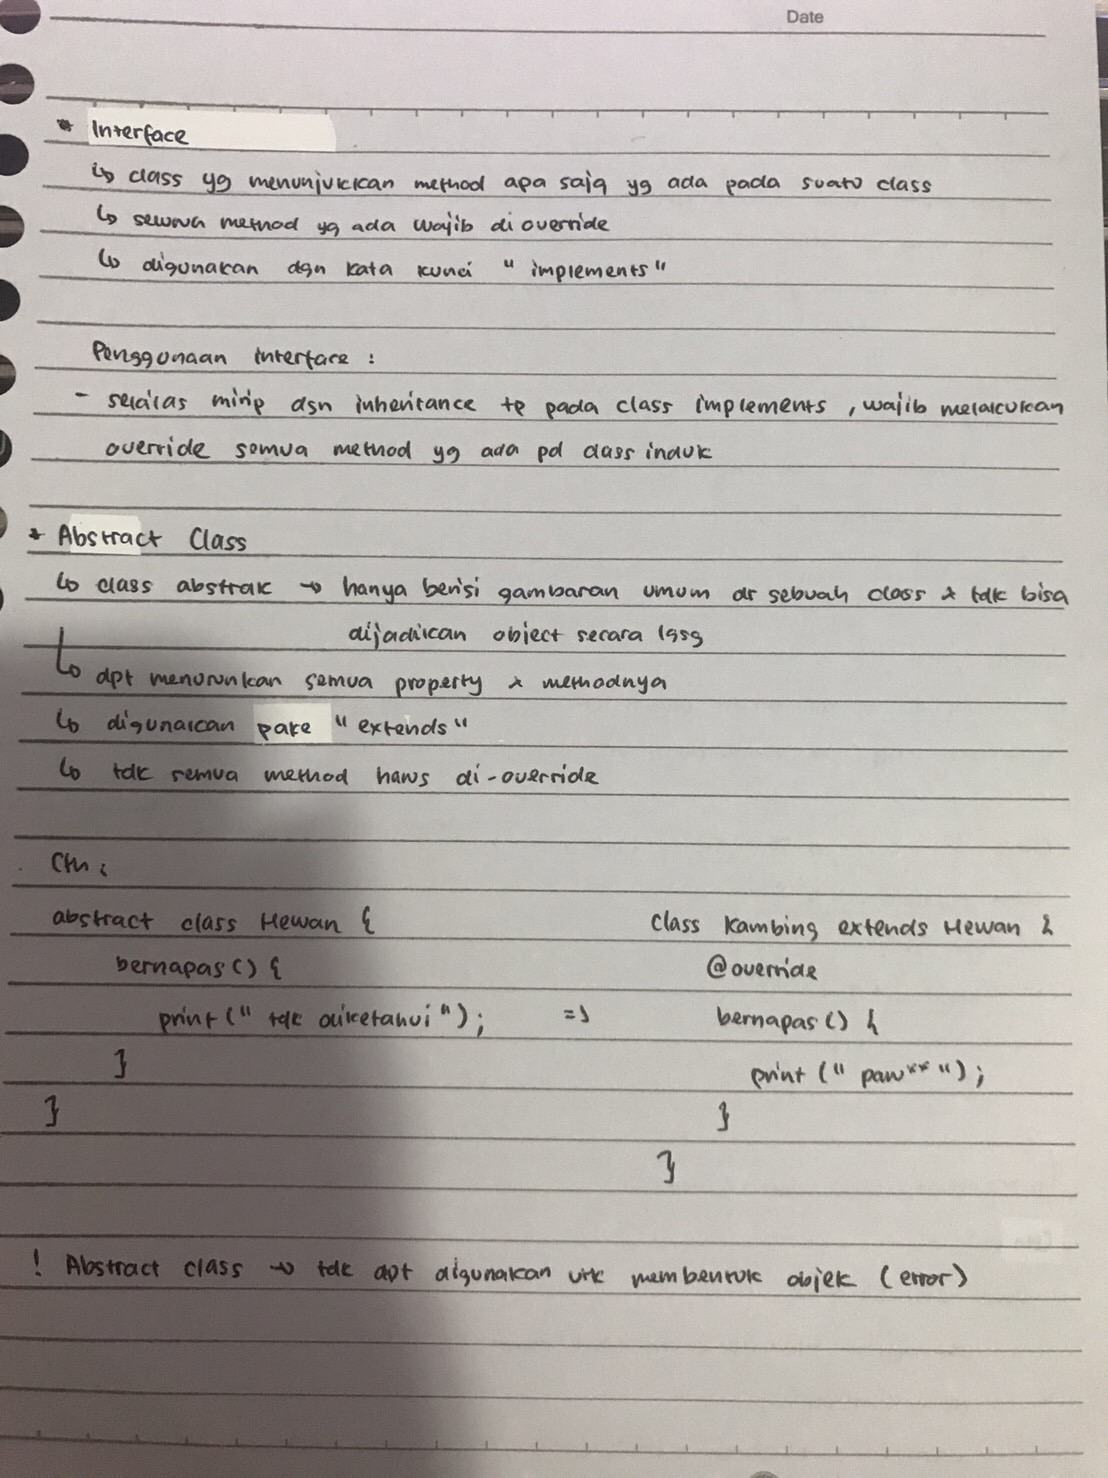 Date
* Interface
↳ class yg menunjukkan method apa saja yg ada pada suatu class
↳ semua method yg ada wajib di override
↳ digunakan dgn kata kunci "implements"
Penggunaan interface :
- sekilas mirip dgn inheritance tp pada class implements, wajib melakukan
override semua method yg ada pd class induk
* Abstract Class
↳ class abstrak → hanya berisi gambaran umum dr sebuah class & tdk bisa
dijadikan object secara lgsg
↳ dpt menurunkan semua property & methodnya
↳ digunakan pake "extends"
↳ tdk semua method harus di-override
Cth :
abstract class Hewan { class Kambing extends Hewan {
bernapas() { @override
print(" tdk diketahui "); => bernapas() {
} print (" paru** ");
} }
}
! Abstract class → tdk dpt digunakan utk membentuk objek (error)